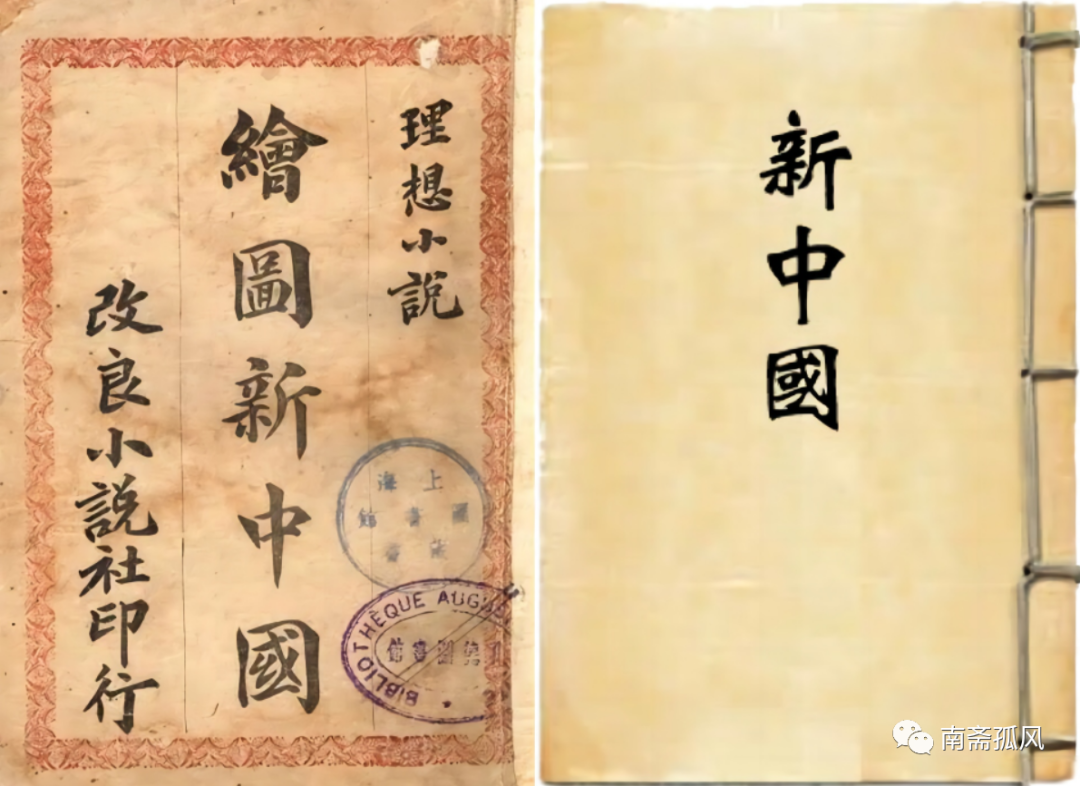 理想小說
繪圖新中國
改良小說社印行
上海
圖書館
藏書
BIBLIOTHÈQUE AUGU
德圖書館
新中國
南斋孤风